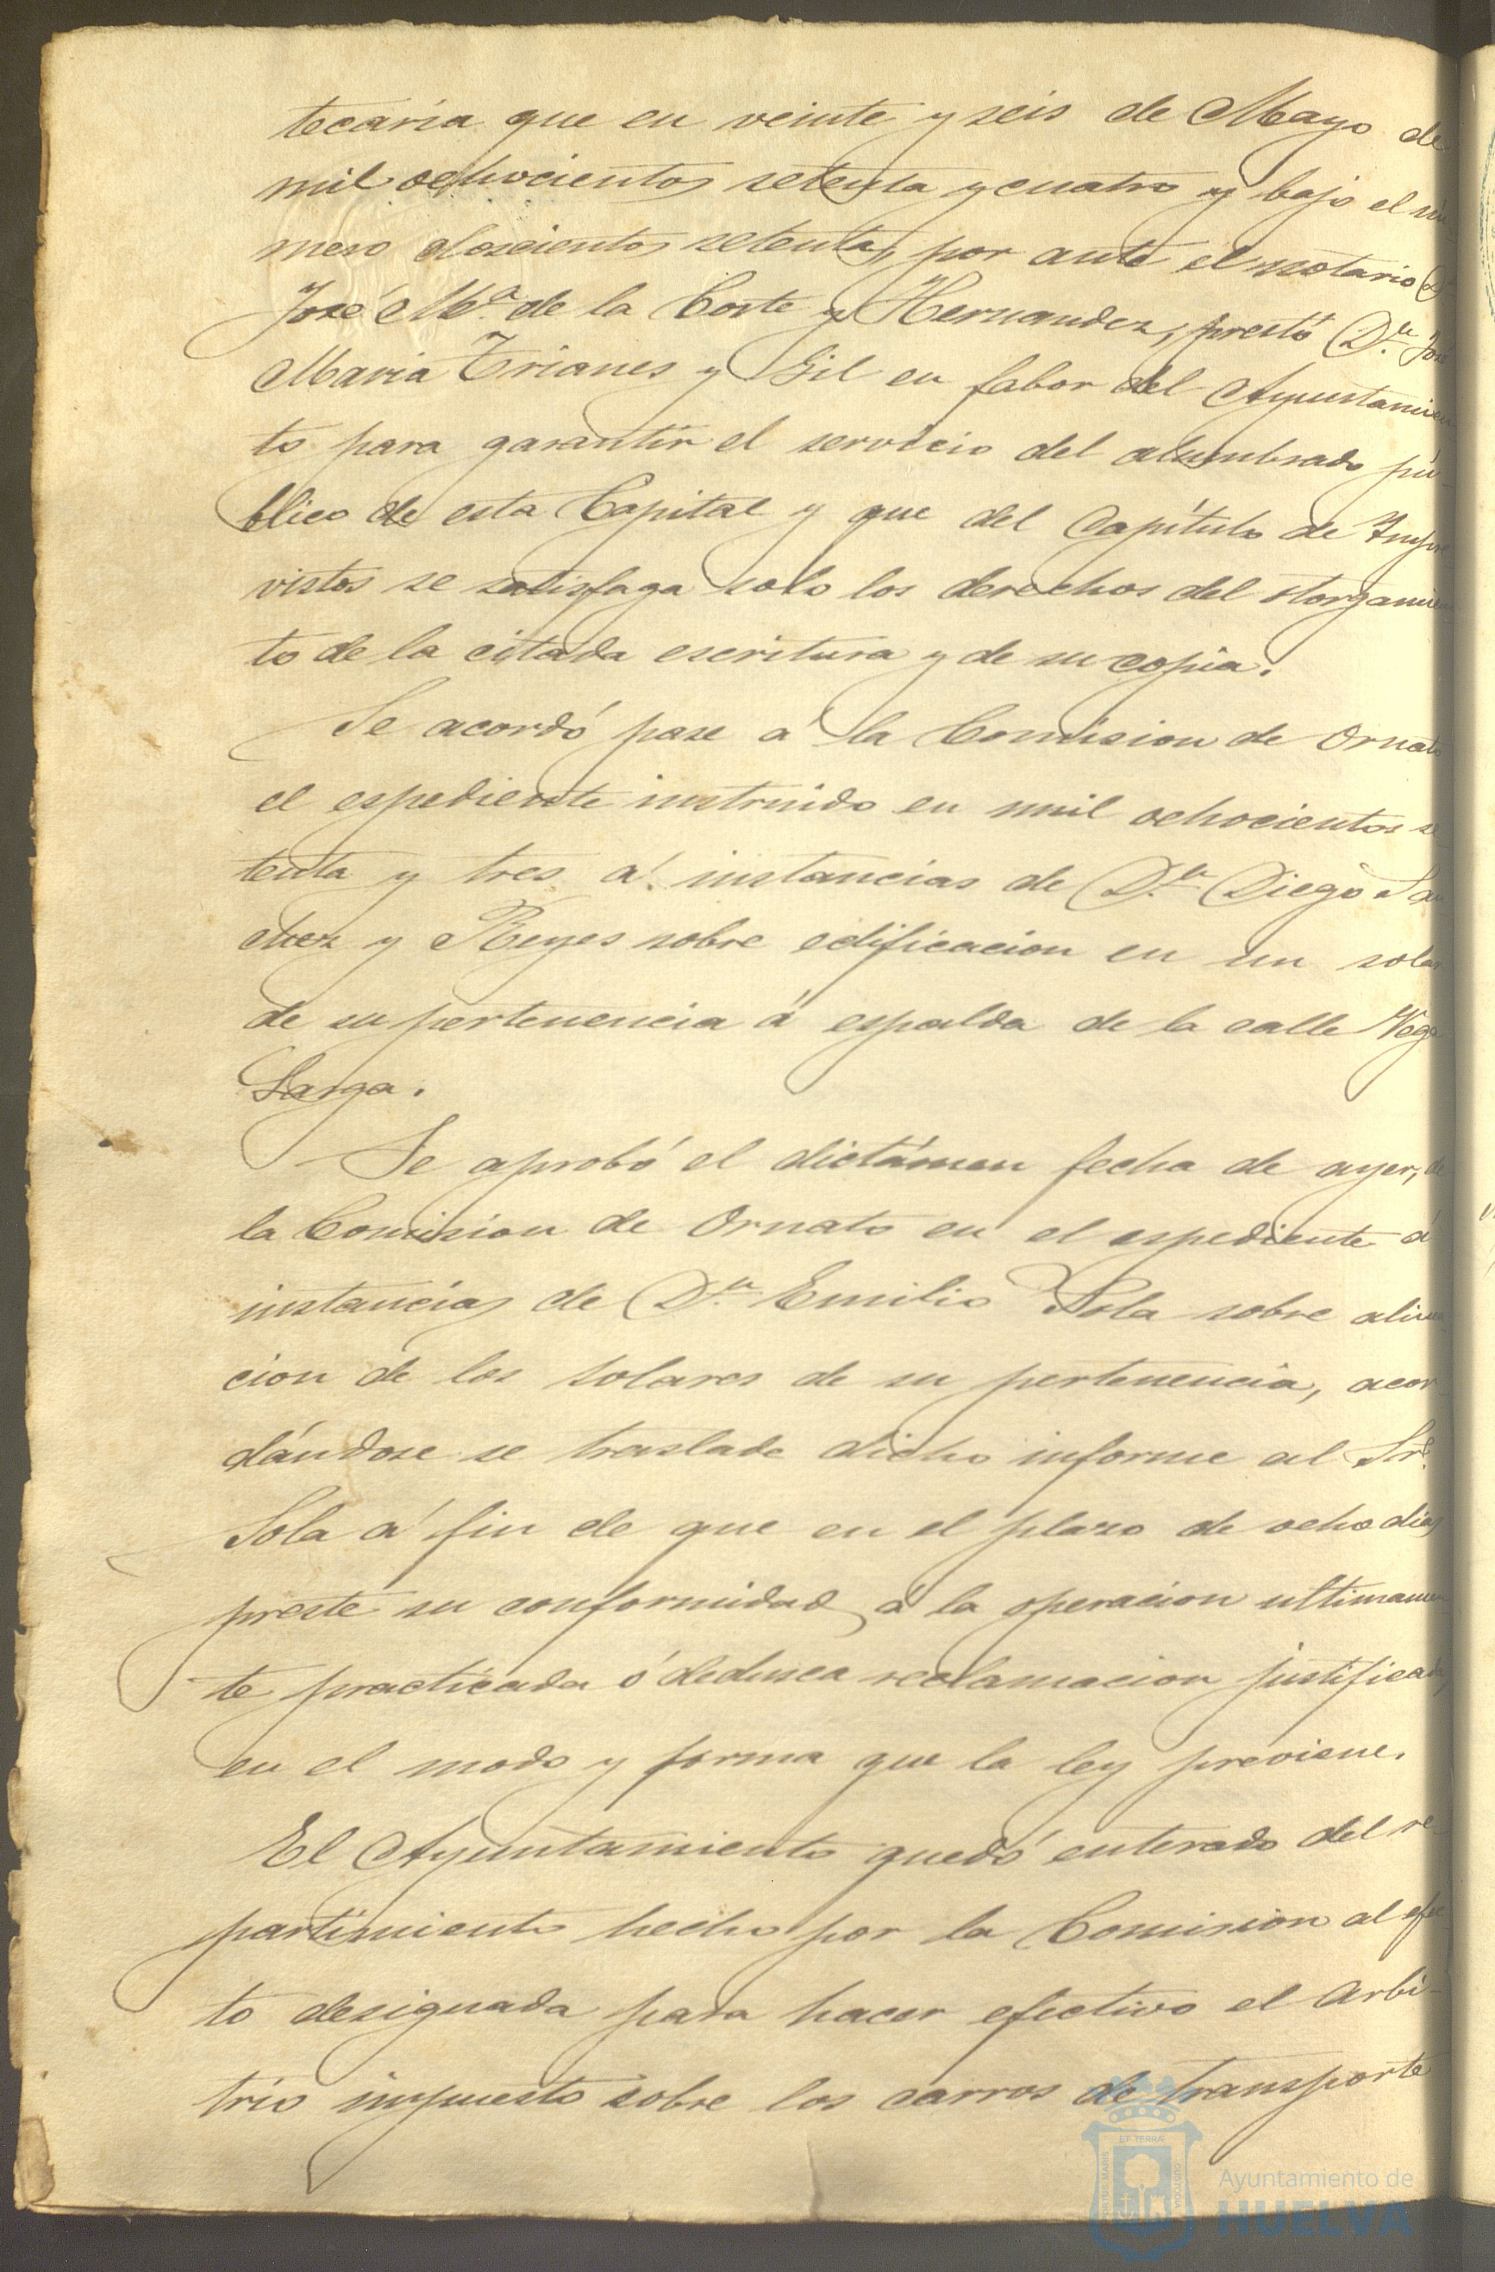 tecaria que en veinte y seis de Mayo de
mil ochocientos setenta y cuatro y bajo el nú
mero doscientos setenta, por ante el notario D.
José M.ª de la Corte y Hernandez, prestó D.n José
Maria Trianes y Gil en fabor del Ayuntamien
to para garantir el servicio del alumbrado pú-
blico de esta Capital y que del Capítulo de Impre
vistos se satisfaga solo los derechos del otorgamien
to de la citada escritura y de su copia.
Se acordó pase á la Comision de Ornato
el espediente instruido en mil ochocientos se
tenta y tres á instancias de D.n Diego San
chez y Reyes sobre edificacion en un solar
de su pertenencia á espalda de la calle Vega
Larga.
Se aprobó el dictámen fecha de ayer, de
la Comision de Ornato en el espediente á
instancias de D.n Emilio Sola sobre alinea
cion de los solares de su pertenencia, acor
dándose se traslade dicho informe al Sr.
Sola á fin de que en el plazo de ocho dias
preste su conformidad á la operacion ultimamen
te practicada ó deduzca reclamacion justificada,
en el modo y forma que la ley previene.
El Ayuntamiento quedó enterado del re
partimiento hecho por la Comision al efec
to designada para hacer efectivo el Arbi-
trio impuesto sobre los carros de transporte
Ayuntamiento de
HUELVA